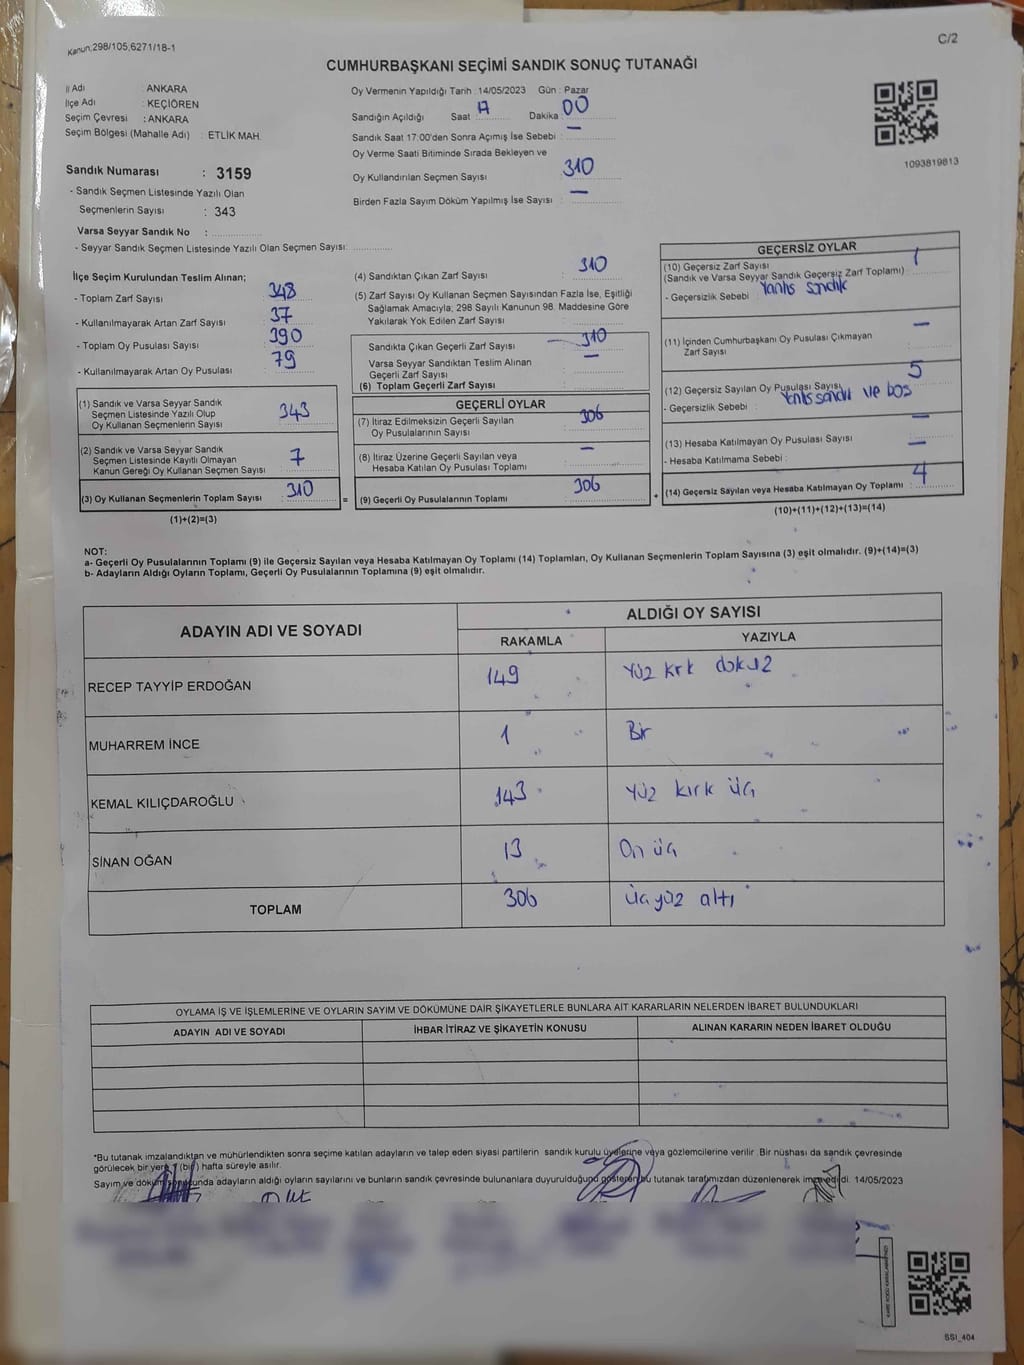 Kanun,298/105,6271/18-1
C/2
CUMHURBAŞKANI SEÇİMİ SANDIK SONUÇ TUTANAĞI
İl Adı : ANKARA
İlçe Adı : KEÇİÖREN
Seçim Çevresi : ANKARA
Seçim Bölgesi (Mahalle Adı) : ETLİK MAH.
Oy Vermenin Yapıldığı Tarih : 14/05/2023 Gün : Pazar
Sandığın Açıldığı Saat : 17 Dakika : 00
Sandık Saat 17:00'den Sonra Açımış İse Sebebi : —
Oy Verme Saati Bitiminde Sırada Bekleyen ve
Oy Kullandırılan Seçmen Sayısı : 310
Birden Fazla Sayım Döküm Yapılmış İse Sayısı : —
1093819813
Sandık Numarası : 3159
- Sandık Seçmen Listesinde Yazılı Olan
Seçmenlerin Sayısı : 343
Varsa Seyyar Sandık No :
- Seyyar Sandık Seçmen Listesinde Yazılı Olan Seçmen Sayısı:
İlçe Seçim Kurulundan Teslim Alınan;
- Toplam Zarf Sayısı : 348
- Kullanılmayarak Artan Zarf Sayısı : 37
- Toplam Oy Pusulası Sayısı : 390
- Kullanılmayarak Artan Oy Pusulası : 79
(1) Sandık ve Varsa Seyyar Sandık
Seçmen Listesinde Yazılı Olup
Oy Kullanan Seçmenlerin Sayısı : 343
(2) Sandık ve Varsa Seyyar Sandık
Seçmen Listesinde Kayıtlı Olmayan
Kanun Gereği Oy Kullanan Seçmen Sayısı : 7
(3) Oy Kullanan Seçmenlerin Toplam Sayısı : 310
(1)+(2)=(3)
(4) Sandıktan Çıkan Zarf Sayısı : 310
(5) Zarf Sayısı Oy Kullanan Seçmen Sayısından Fazla İse, Eşitliği
Sağlamak Amacıyla; 298 Sayılı Kanunun 98. Maddesine Göre
Yakılarak Yok Edilen Zarf Sayısı :
Sandıkta Çıkan Geçerli Zarf Sayısı : 310
Varsa Seyyar Sandıktan Teslim Alınan
Geçerli Zarf Sayısı : —
(6) Toplam Geçerli Zarf Sayısı :
GEÇERLİ OYLAR
(7) İtiraz Edilmeksizin Geçerli Sayılan
Oy Pusulalarının Sayısı : 306
(8) İtiraz Üzerine Geçerli Sayılan veya
Hesaba Katılan Oy Pusulası Toplamı : —
= (9) Geçerli Oy Pusulalarının Toplamı : 306
GEÇERSİZ OYLAR
(10) Geçersiz Zarf Sayısı 1
(Sandık ve Varsa Seyyar Sandık Geçersiz Zarf Toplamı) :
- Geçersizlik Sebebi : Yanlıs sandık
(11) İçinden Cumhurbaşkanı Oy Pusulası Çıkmayan —
Zarf Sayısı
(12) Geçersiz Sayılan Oy Pusulası Sayısı 5
- Geçersizlik Sebebi : Yanlıs sandık ve bos
(13) Hesaba Katılmayan Oy Pusulası Sayısı : —
- Hesaba Katılmama Sebebi : —
+ (14) Geçersiz Sayılan veya Hesaba Katılmayan Oy Toplamı : 4
(10)+(11)+(12)+(13)=(14)
NOT:
a- Geçerli Oy Pusulalarının Toplamı (9) ile Geçersiz Sayılan veya Hesaba Katılmayan Oy Toplamı (14) Toplamları, Oy Kullanan Seçmenlerin Toplam Sayısına (3) eşit olmalıdır. (9)+(14)=(3)
b- Adayların Aldığı Oyların Toplamı, Geçerli Oy Pusulalarının Toplamına (9) eşit olmalıdır.
ADAYIN ADI VE SOYADI ALDIĞI OY SAYISI
RAKAMLA YAZIYLA
RECEP TAYYİP ERDOĞAN 149 Yüz kırk dokuz
MUHARREM İNCE 1 Bir
KEMAL KILIÇDAROĞLU 143 Yüz kırk üç
SİNAN OĞAN 13 On üç
TOPLAM 306 Üçyüz altı
OYLAMA İŞ VE İŞLEMLERİNE VE OYLARIN SAYIM VE DÖKÜMÜNE DAİR ŞİKAYETLERLE BUNLARA AİT KARARLARIN NELERDEN İBARET BULUNDUKLARI
ADAYIN ADI VE SOYADI İHBAR İTİRAZ VE ŞİKAYETİN KONUSU ALINAN KARARIN NEDEN İBARET OLDUĞU
*Bu tutanak imzalandıktan ve mühürlendikten sonra seçime katılan adayların ve talep eden siyasi partilerin sandık kurulu üyelerine veya gözlemcilerine verilir. Bir nüshası da sandık çevresinde
görülecek bir yere 1 (bir) hafta süreyle asılır.
Sayım ve döküm sonucunda adayların aldığı oyların sayılarını ve bunların sandık çevresinde bulunanlara duyurulduğunu gösteren bu tutanak tarafımızdan düzenlenerek imzalandı. 14/05/2023
SSI_404